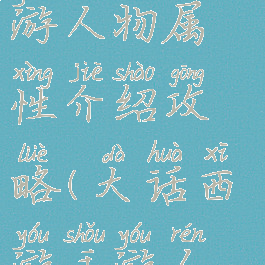 游人物属
xìng jiè shào gōng
性介绍攻
lüè dà huà xī
略(大话西
yóu shǒu yóu rén
游手游人